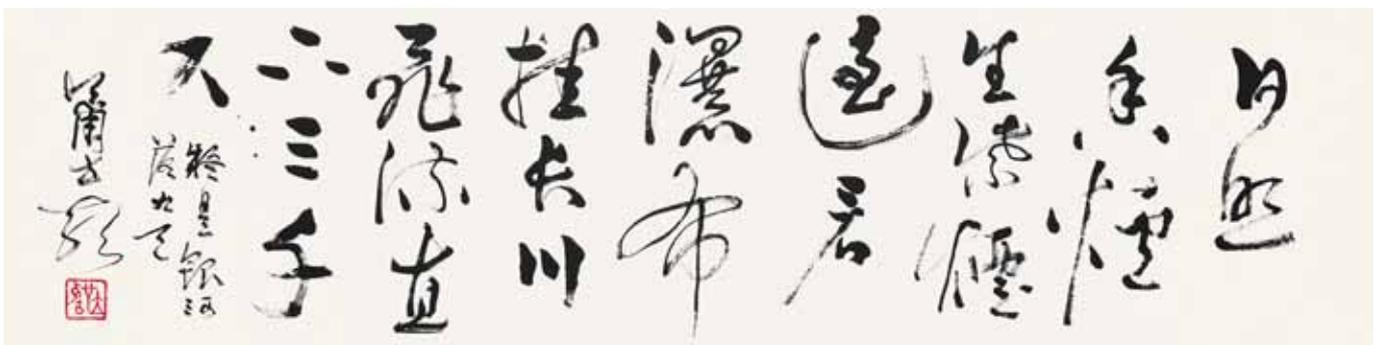 日照
香爐
生紫煙
遥看
瀑布
挂长川
飛流直
下三千
尺
疑是銀河
落九天